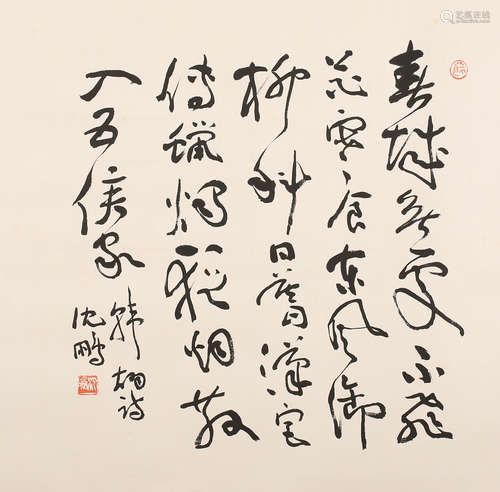 春城無處不飛
花寒食東風御
柳斜日暮漢宮
傳蠟燭輕烟散
入五侯家
韓翃詩
沈鵬